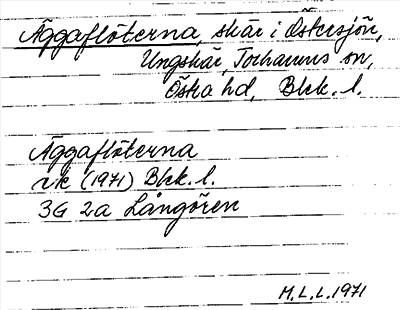 Äggaflöterna, skär i Östersjön,
Ungskär, Torhamns sn,
Östra hd, Blek. l.
Äggaflöterna
rk (1971) Blek. l.
3G 2a Långören
M.L.L. 1971